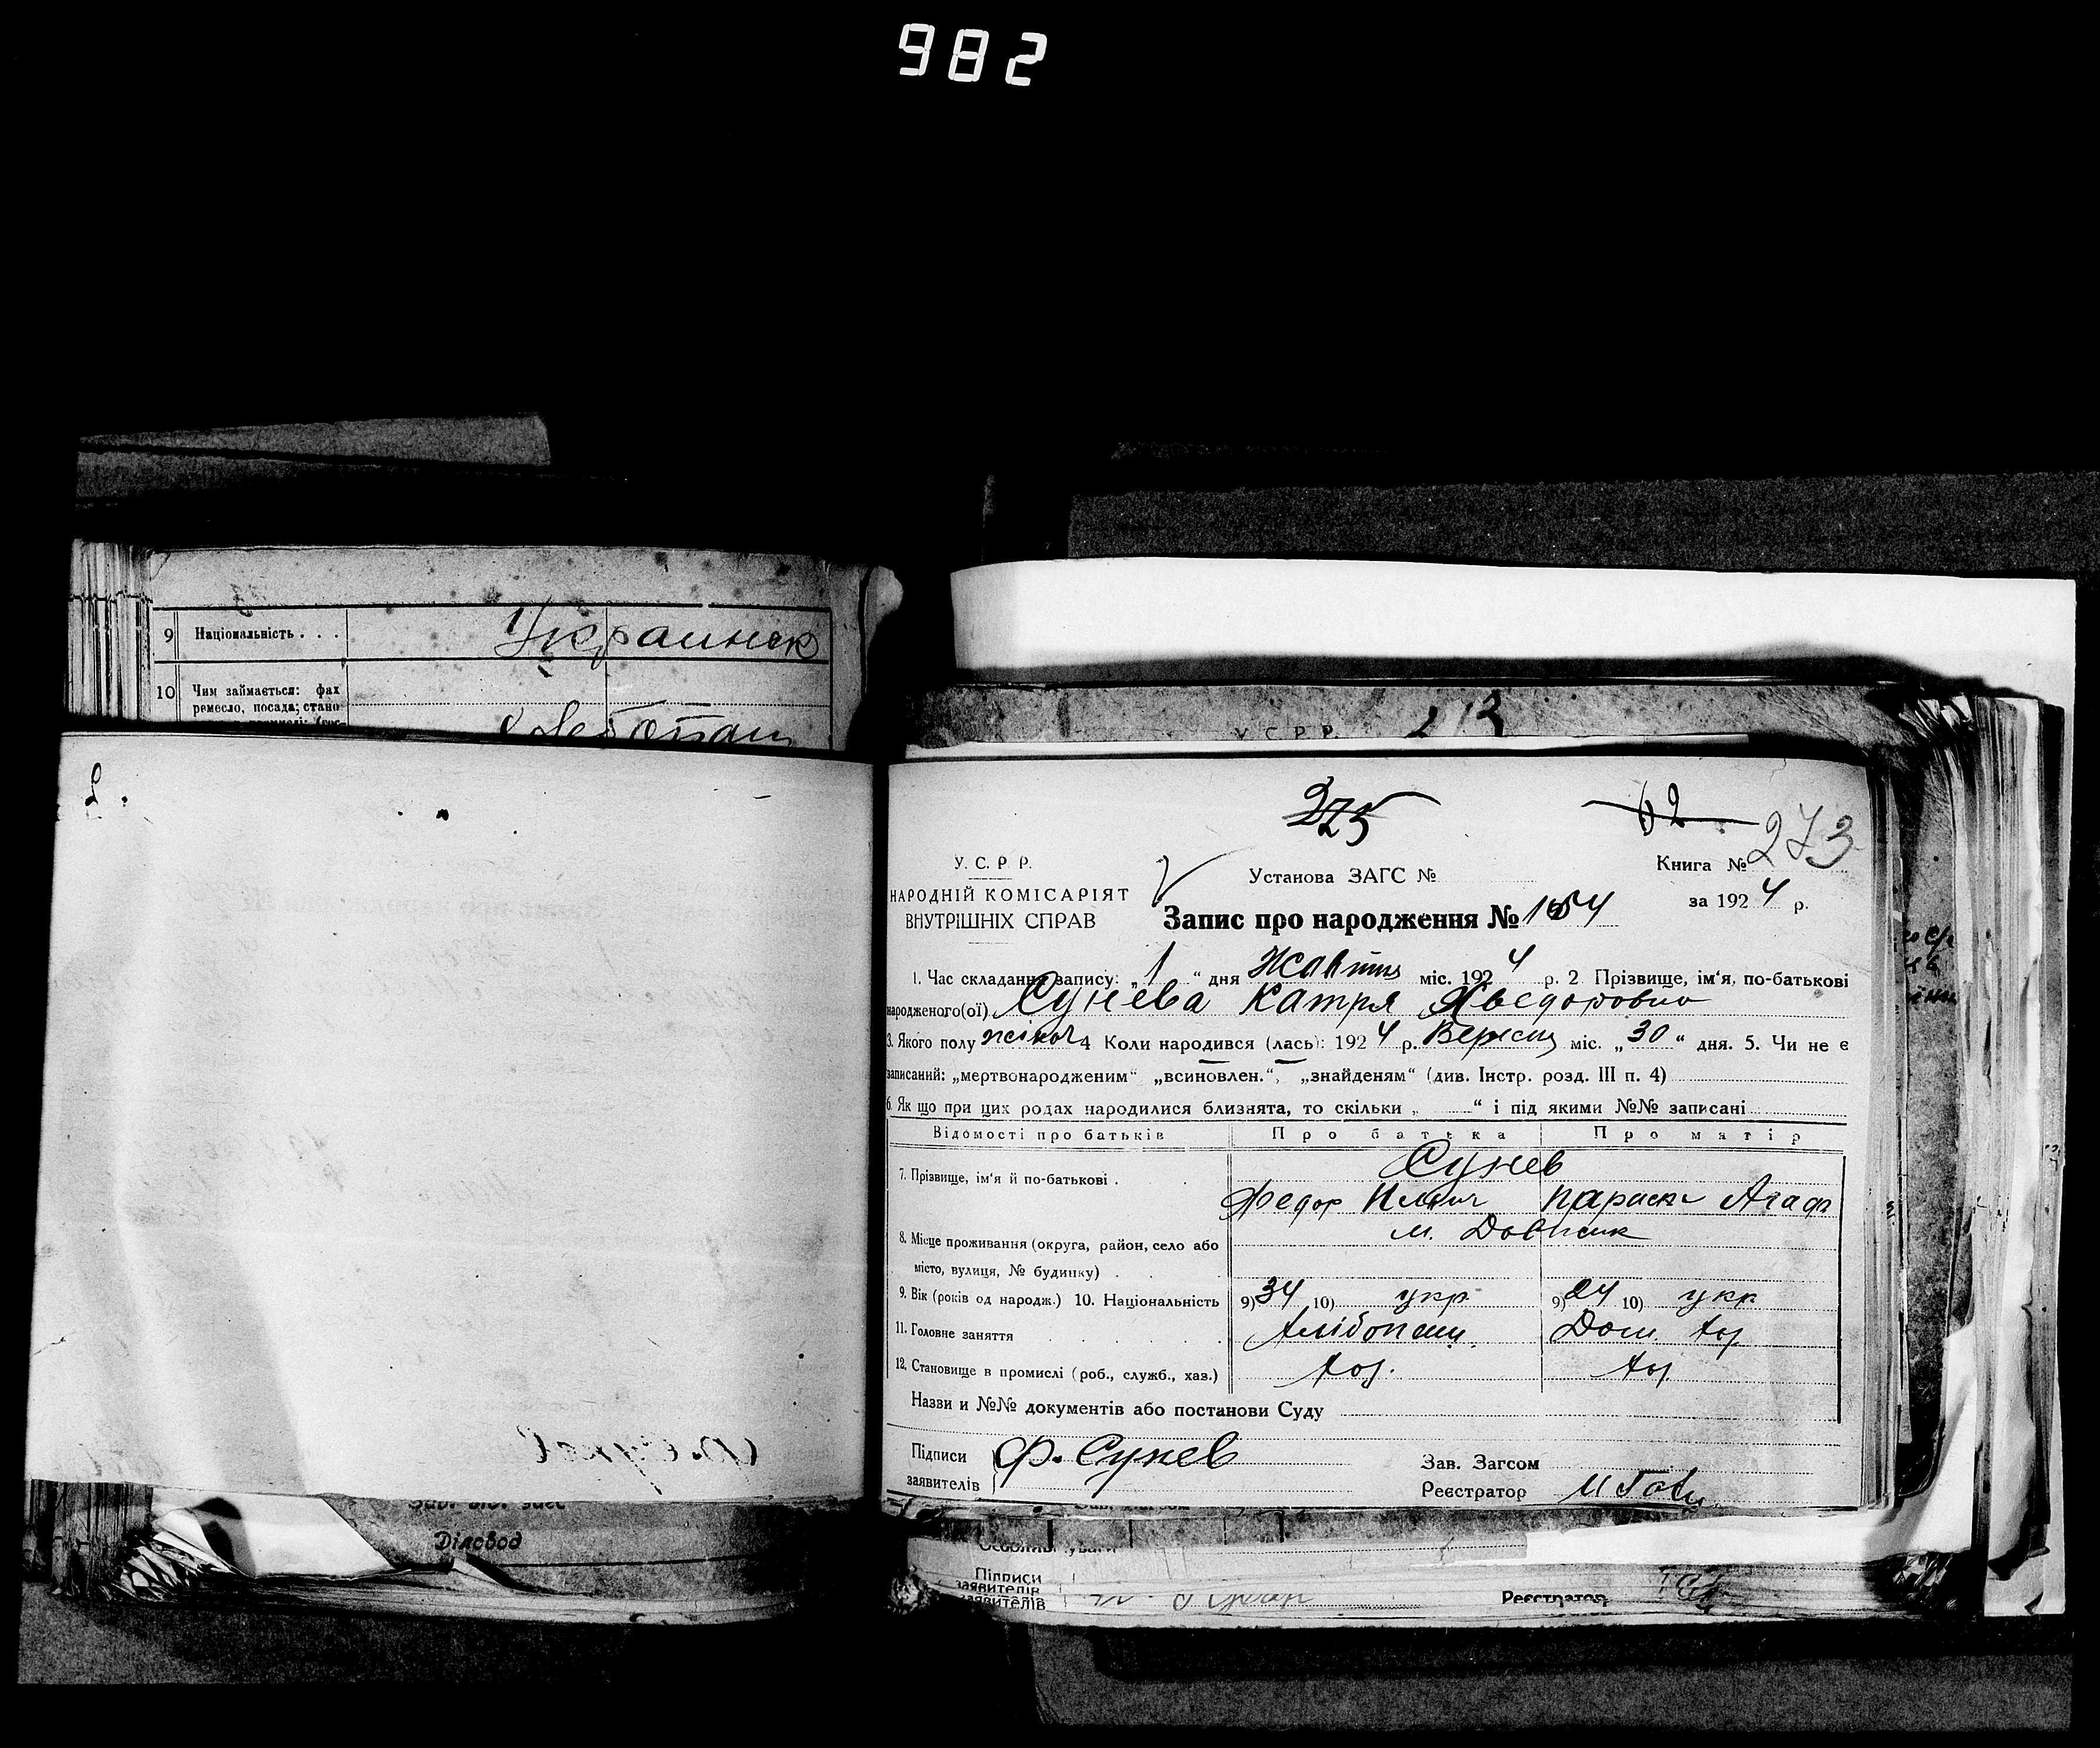 982
9 Національність . . . Украинск
10 Чим займається: фах
ремесло, посада, стано
У. С. Р. Р.
Діловод
325
62
273
У. С. Р. Р.
НАРОДНІЙ КОМІСАРІЯТ
ВНУТРІШНІХ СПРАВ
Установа ЗАГС №
Книга №
за 1924 р.
Запис про народження №
1. Час складання запису: „1“ дня Жовтня міс. 1924 р. 2. Прізвище, ім‘я, по-батькові
народженого(ої) Сунева Катря Хведоровно
3. Якого полу жіноч 4 Коли народився (лась): 1924 р. Вересня міс. „30“ дня. 5. Чи не є
записаний: „мертвонародженим“ „всиновлен.“, „знайденям“ (див. Інстр. розд. III п. 4)
6. Як що при цих родах народилися близнята, то скільки „ “ і під якими №№ записані
Відомості про батьків Про батька Про матір
Сунев
7. Прізвище, ім‘я й по-батькові .
Федор Параск Агаф
8. Місце проживання (округа, район, село або м. Довбиш
місто, вулиця, № будинку) .
9. Вік (років од народж.) 10. Національність 9) 34 10) укр 9) 24 10) укр
11. Головне заняття Хлібопаш. Дом. хоз
12. Становище в промислі (роб., служб., хаз.) хоз. хоз
Назви и №№ документів або постанови Суду
Підписи
заявителів
Ф. Сунев
Зав. Загсом
Реєстратор
Підписи
заявителів
заявителів
Реєстратор